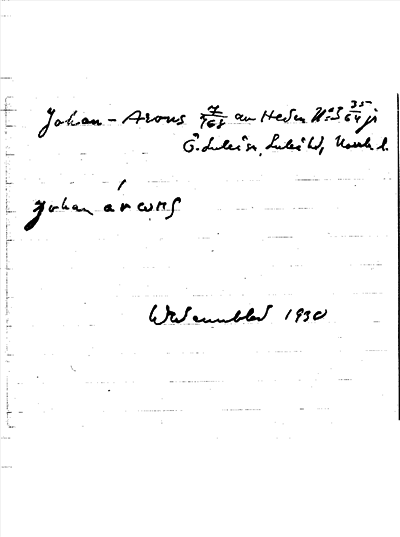 Johan - Arons 7/768 av Heden N:o 3 35/64 i
Ö. Luleå sn, Luleå tf, Norrb. l.
Johan árons
1930